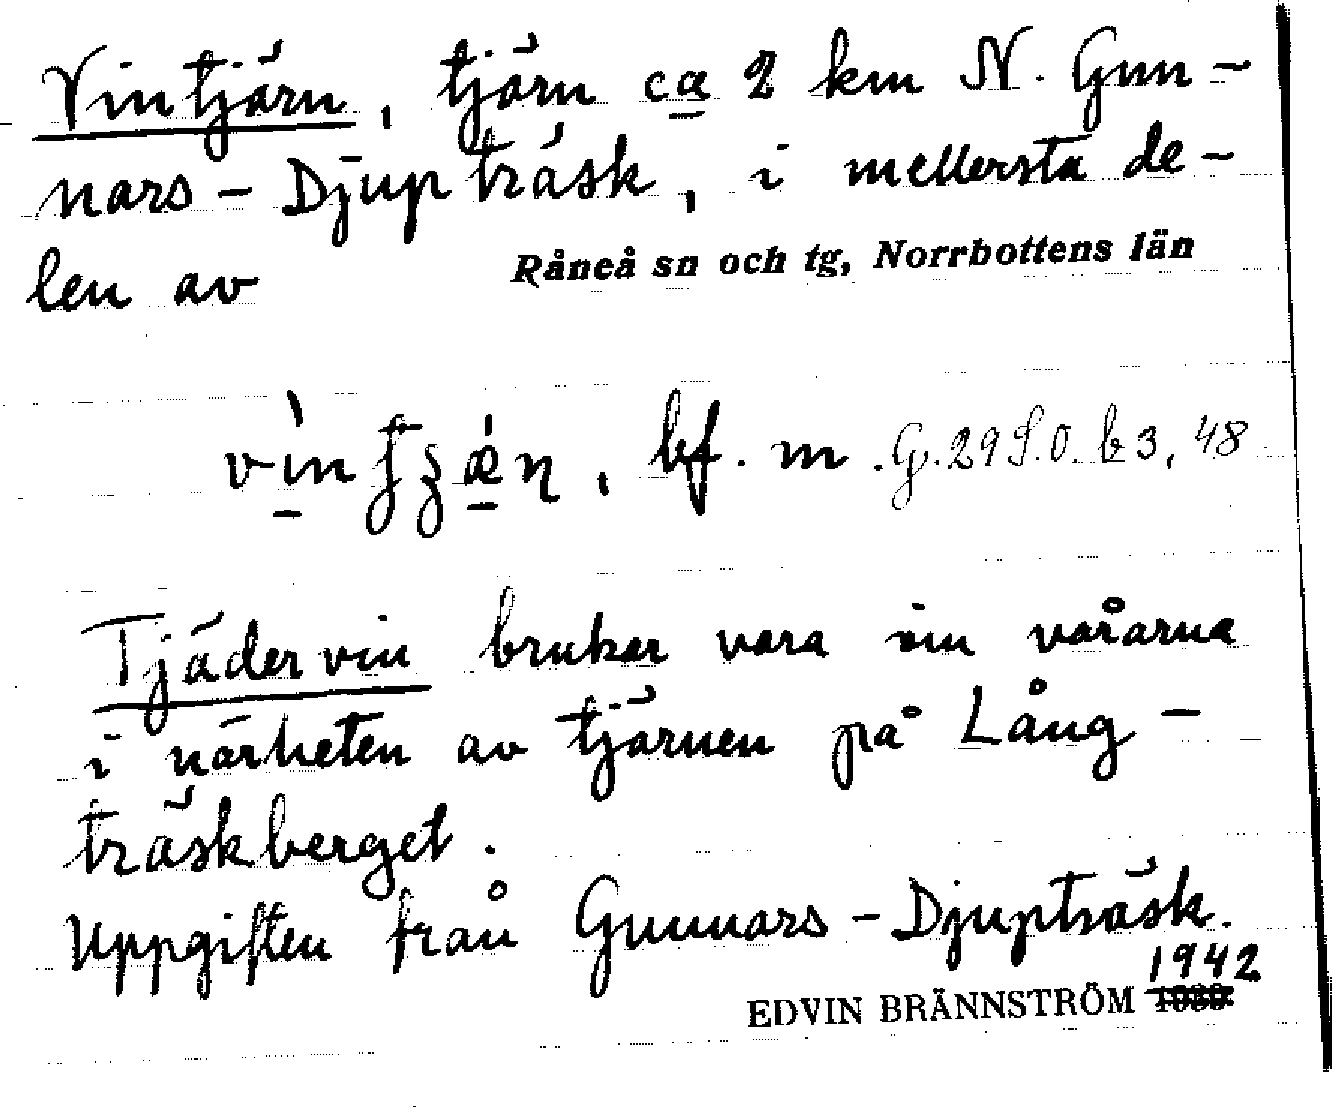 Vintjärn, tjärn ca 2 km N. Gun-
nars-Djupträsk, i mellersta de-
len av Råneå sn och tg, Norrbottens län
bf. m. G. 29 S.O. b 3, 48
Tjädervin bruka vara om vårarna
i närheten av tjärnen på Lång-
träskberget.
Uppgiften från Gunnars-Djupträsk.
1942
EDVIN BRÄNNSTRÖM 1939.